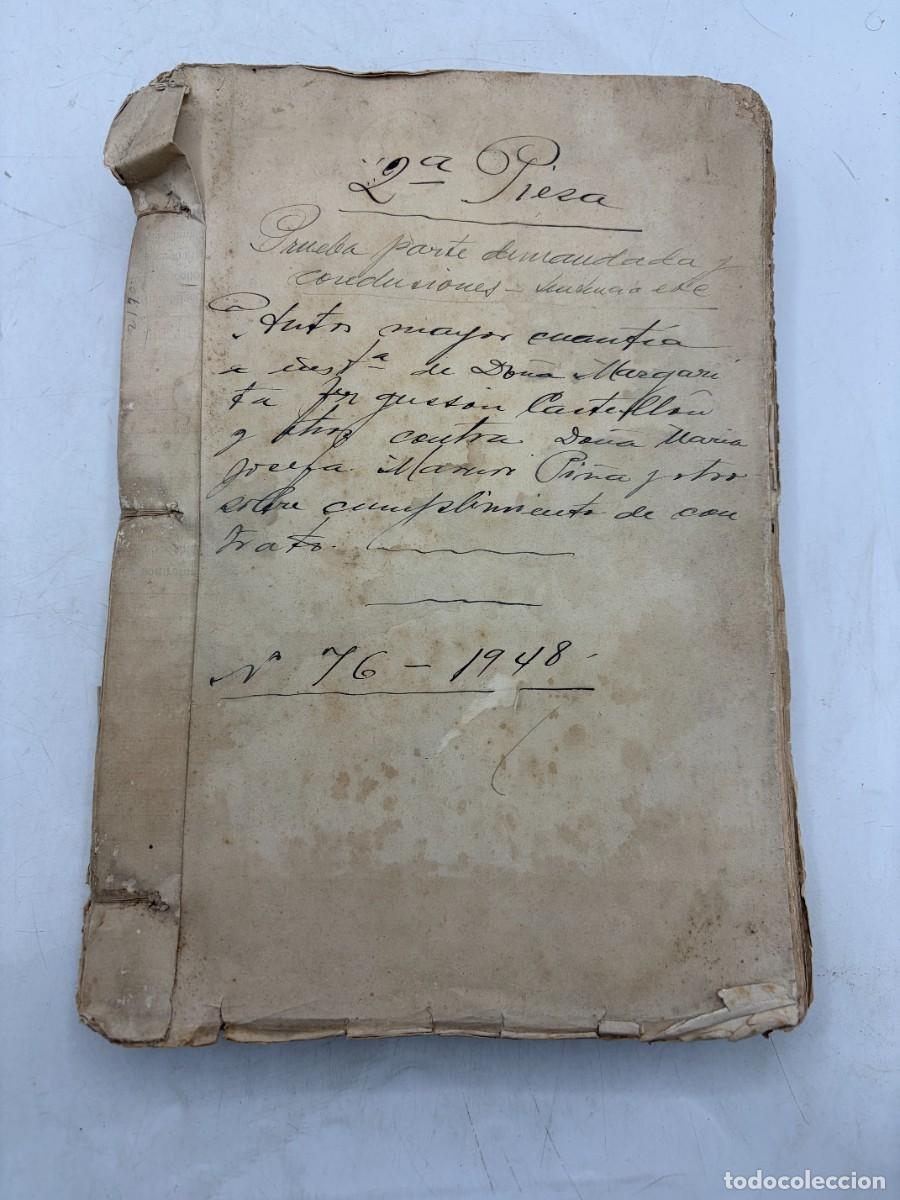 2ª Piesa
Prueba parte demandada y
conclusiones - Sentencia etc
Autos mayor cuantía
a instª de Doña Margari
ta Fergusson Castellón
y otros contra Doña Maria
Josefa Piña y otro
sobre cumplimiento de con
trato.
Nº 76 - 1948
todocoleccion